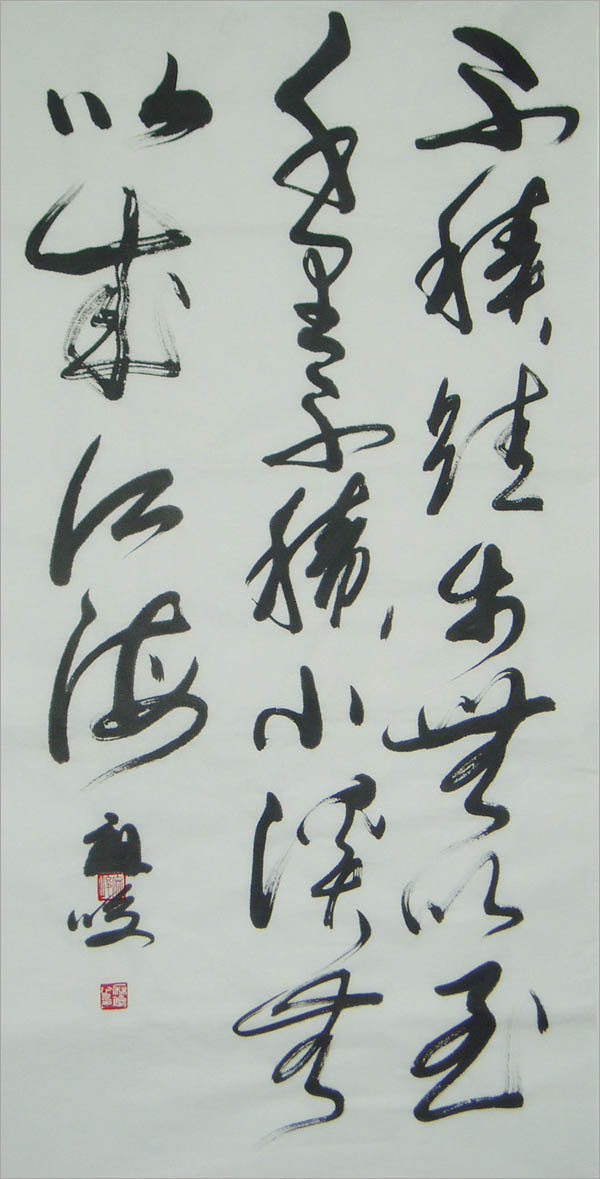 不積跬步無以至
千里不積小溪无
以成江海